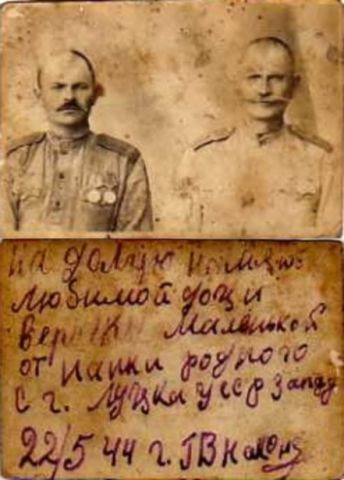 на долгую память
любимой доци
верочки маленькой
от папки родного
с г. Луцка усср запад
22/5 44 г.